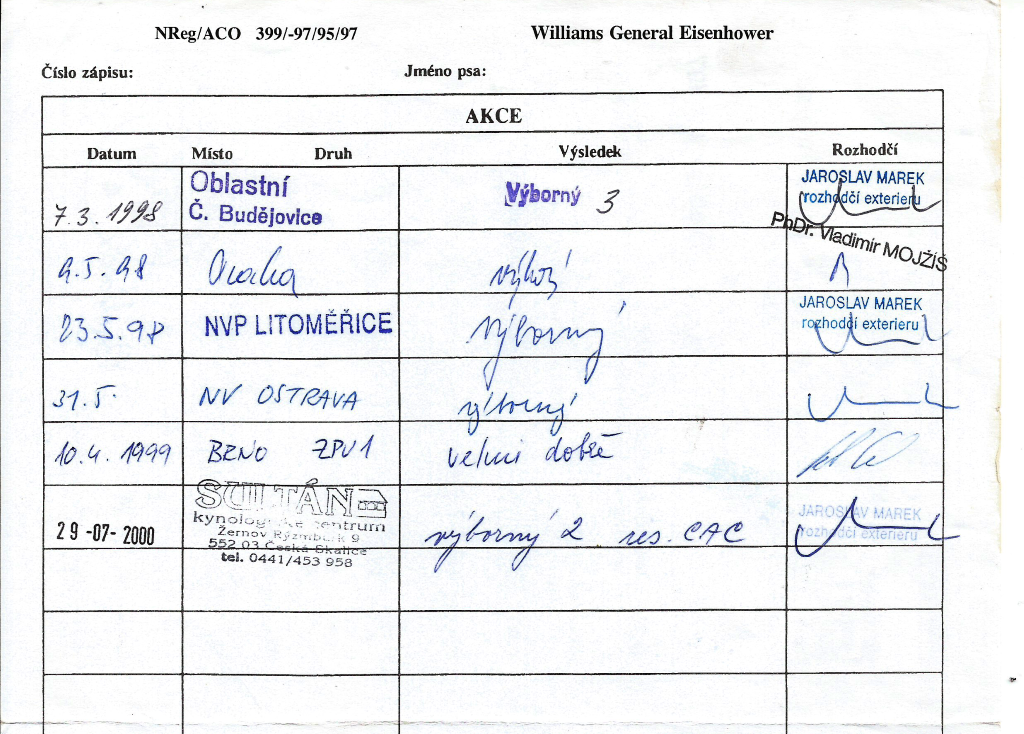 NReg/ACO 399/-97/95/97 Williams General Eisenhower
Číslo zápisu: Jméno psa:
AKCE
Datum Místo Druh Výsledek Rozhodčí
7.3.1998 Oblastní Č. Budějovice Výborný 3 JAROSLAV MAREK rozhodčí exterieru
PhDr. Vladimír MOJŽÍŠ
9.5.98 Praha výborný
23.5.98 NVP LITOMĚŘICE výborný JAROSLAV MAREK rozhodčí exterieru
31.5. NV OSTRAVA výborný
10.4.1999 BRNO ZPU1 velmi dobře
SULTÁN
kynologické centrum
29-07-2000 Žernov Rýzmburk 9 výborný 2 res. CAC JAROSLAV MAREK rozhodčí exterieru
552 03 Česká Skalice
tel. 0441/453 958